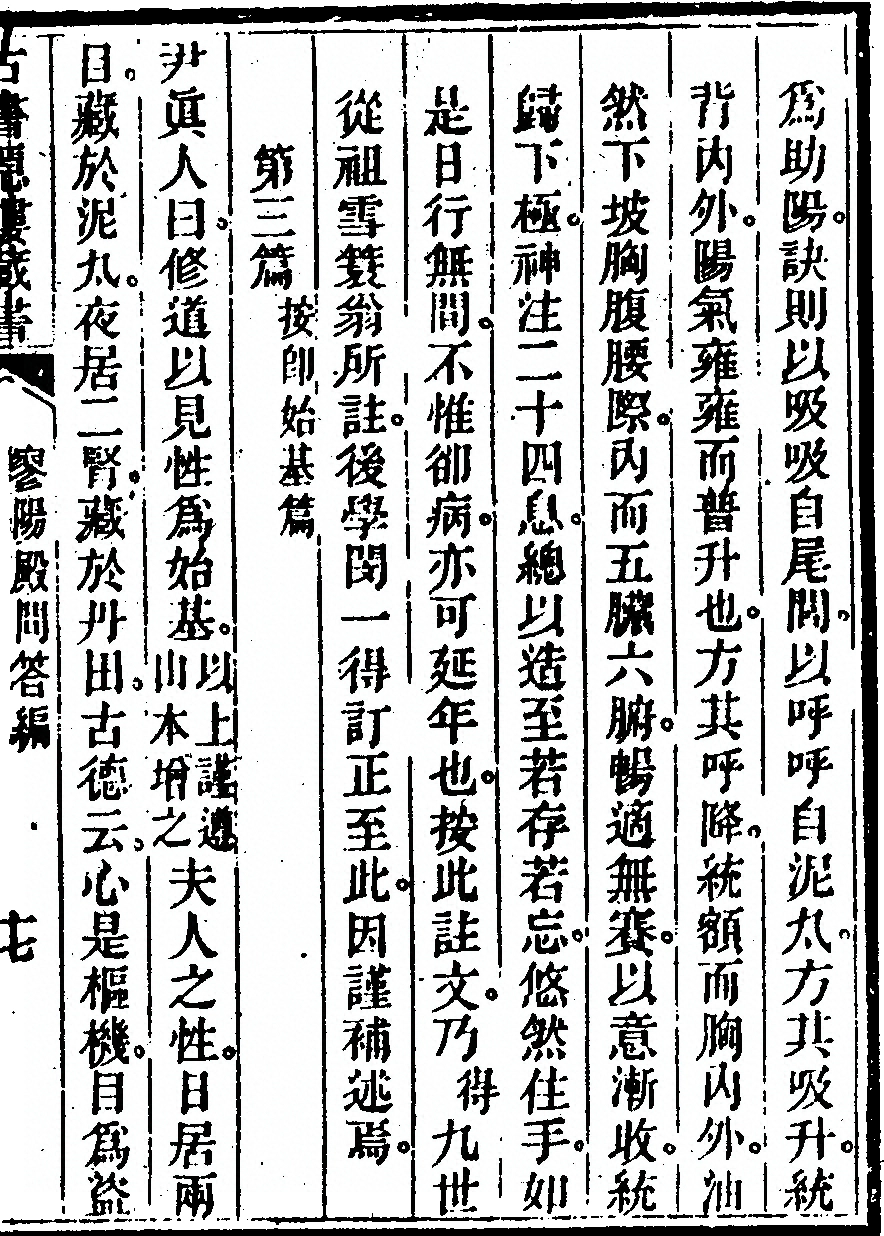 爲助陽。訣則以吸吸自尾閭。以呼呼自泥丸。方其吸升。統
背內外。陽氣雍雍而普升也。方其呼降。統額而胸內外。油
然下坡胸腹腰際。內而五臟六腑。暢適無塞。以意漸收。統
歸下極。神注二十四息。總以造至若存若忘。悠然住手。如
是日行無間。不惟卻病。亦可延年也。按此註文。乃得九世
從祖雪簑翁所註。後學閔一得訂正至此。因謹補述焉。
第三篇 按卽始基篇
尹眞人曰。修道以見性爲始基。以上謹遵山本增之夫人之性。日居兩
目。藏於泥丸。夜居二腎。藏於丹田。古德云。心是樞機。目爲盜
古書隱樓藏書
寥陽殿問答編
七